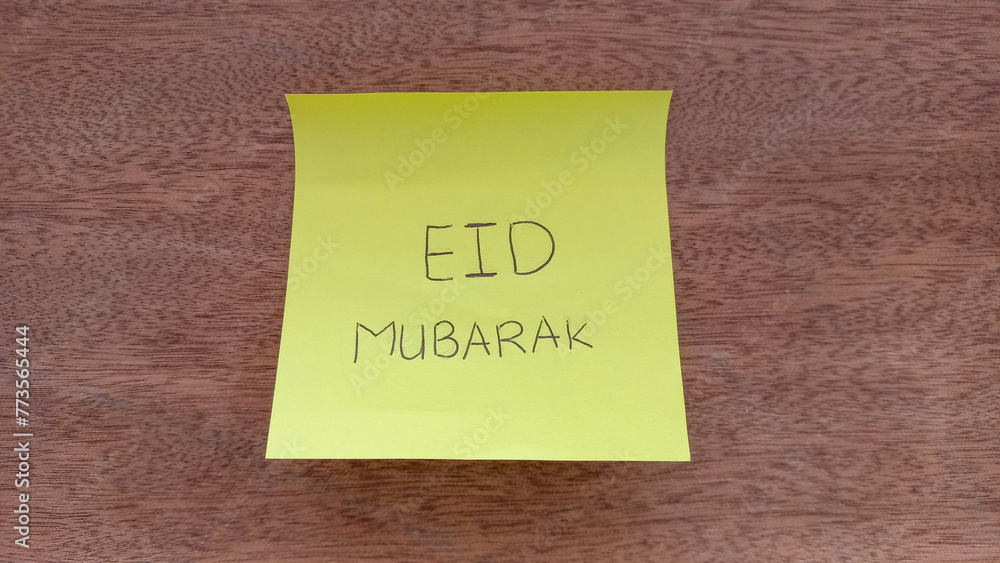 EID
MUBARAK
Adobe Stock | #773565444